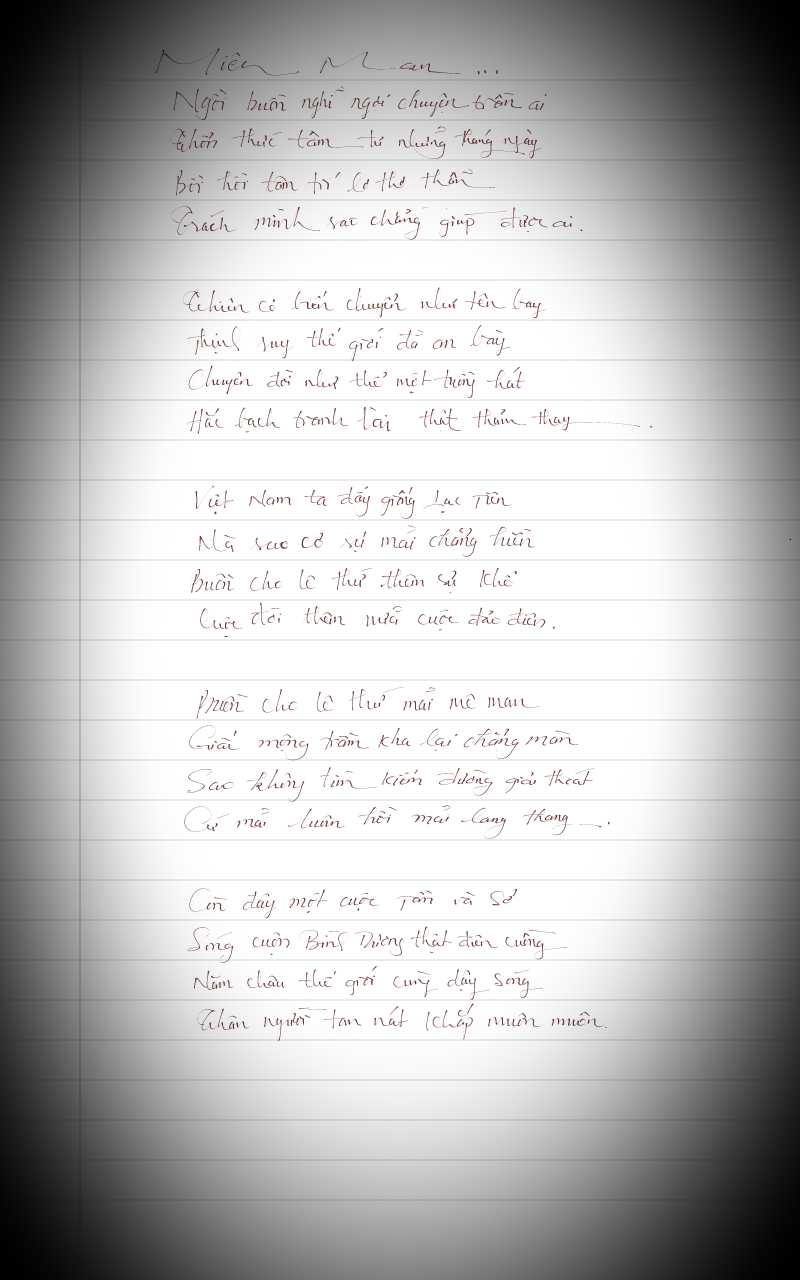 Miên Man ...
Ngồi buồn nghĩ ngợi chuyện trần ai
Thổn thức tâm tư những tháng ngày
Bồi hồi tâm trí lơ thơ thẩn
Trách mình sao chẳng giúp được ai.
Thiên cơ biến chuyển như tên bay
Thịnh suy thế giới đã an bày
Chuyện đời như thể một tuồng hát
Hắc bạch tranh tài thật thảm thay.
Việt Nam ta đấy giống Lạc Tiên
Mà sao cơ sự mãi chẳng hiền
Buồn cho lê thứ thân sự khổ
Cuộc đời thêm nữa cuộc đảo điên.
Buồn cho lê thứ mãi mê man
Giấc mộng trầm kha lại chẳng màn
Sao không tìm kiếm đường giải thoát
Cứ mãi luân hồi mãi lang thang.
Còn đây một cuộc Tần và Sở
Sóng cuộn Bình Dương thật điên cuồng
Năm châu thế giới cùng dậy sóng
Thân người tan nát khắp muôn muôn.